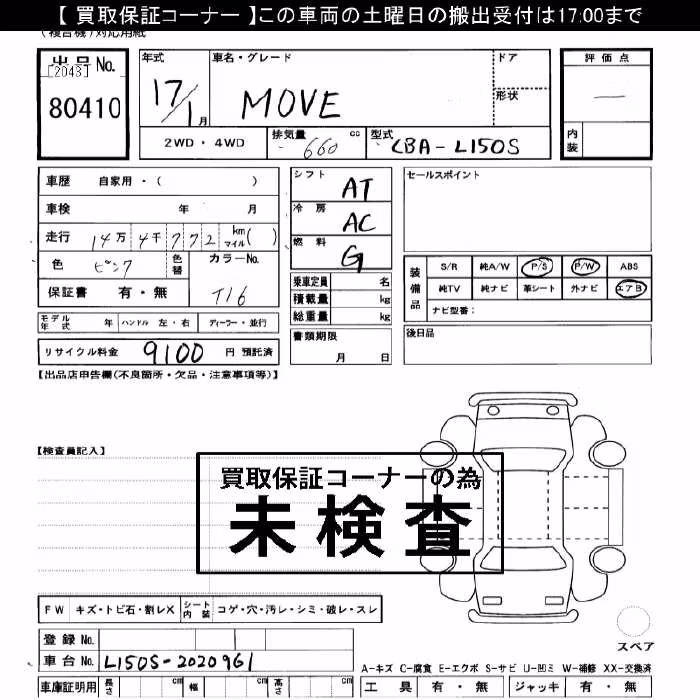 【 買取保証コーナー 】この車両の土曜日の搬出受付は17:00まで
(複合機)対応用紙
出品No.
[2043]
80410
年式
17/1月
車名・グレード
MOVE
ドア
形状
評価点
―
内装
2WD・4WD
排気量 660 cc
型式 CBA-L150S
車歴 自家用・( )
車検 年 月
走行 14万 4千 772 km マイル( )
色 ピンク
色替
カラーNo. T16
保証書 有・無
シフト AT
冷房 AC
燃料 G
乗車定員 名
積載量 kg
総重量 kg
セールスポイント
装備品
S/R 純A/W P/S P/W ABS
純TV 純ナビ 革シート 外ナビ エアB
ナビ型番:
モデル年式 年 ハンドル 左・右 ディーラー・並行
書類期限
月 日
後日品
リサイクル料金 9100 円 預託済
【出品店申告欄(不良箇所・欠品・注意事項等)】
【検査員記入】
買取保証コーナーの為
未検査
FW キズ・トビ石・割レX シート内装 コゲ・穴・汚レ・シミ・破レ・スレ
登録 No.
車台 No. L150S-2020961
スペア
A-キズ C-腐食 E-エクボ S-サビ U-凹ミ W-補修 XX-交換済
車庫証明用 長さ cm 幅 cm 高さ cm
工具 有・無 ジャッキ 有・無